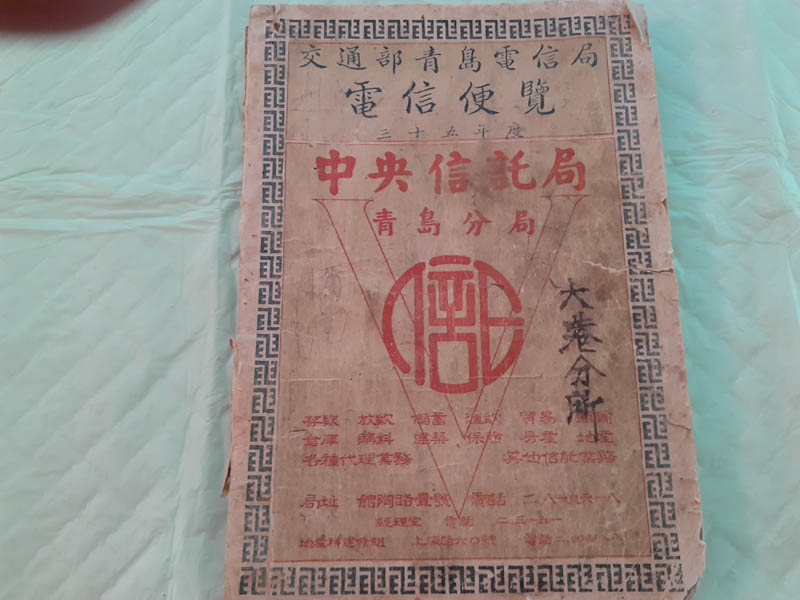 交通部青島電信局
電信便覽
三十五年度
中央信託局
青島分局
信託
大港分所
存款 放款 儲蓄 匯款 貿易 運輸
倉庫 購料 建築 保險 房產 地產
各種代理業務 其他信託業務
局址 館陶路壹號 電話
經理室 電話
地產科建修組 電話